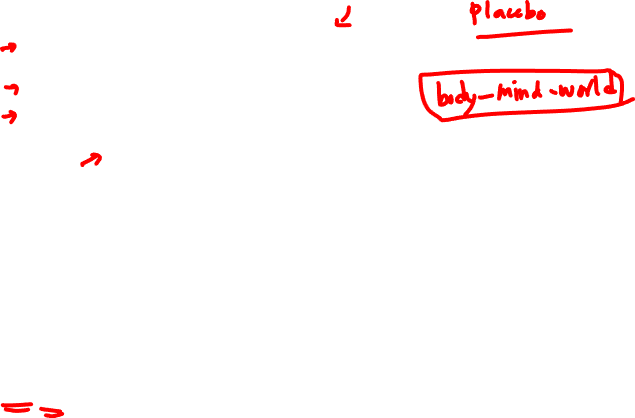 placebo
body-mind-world